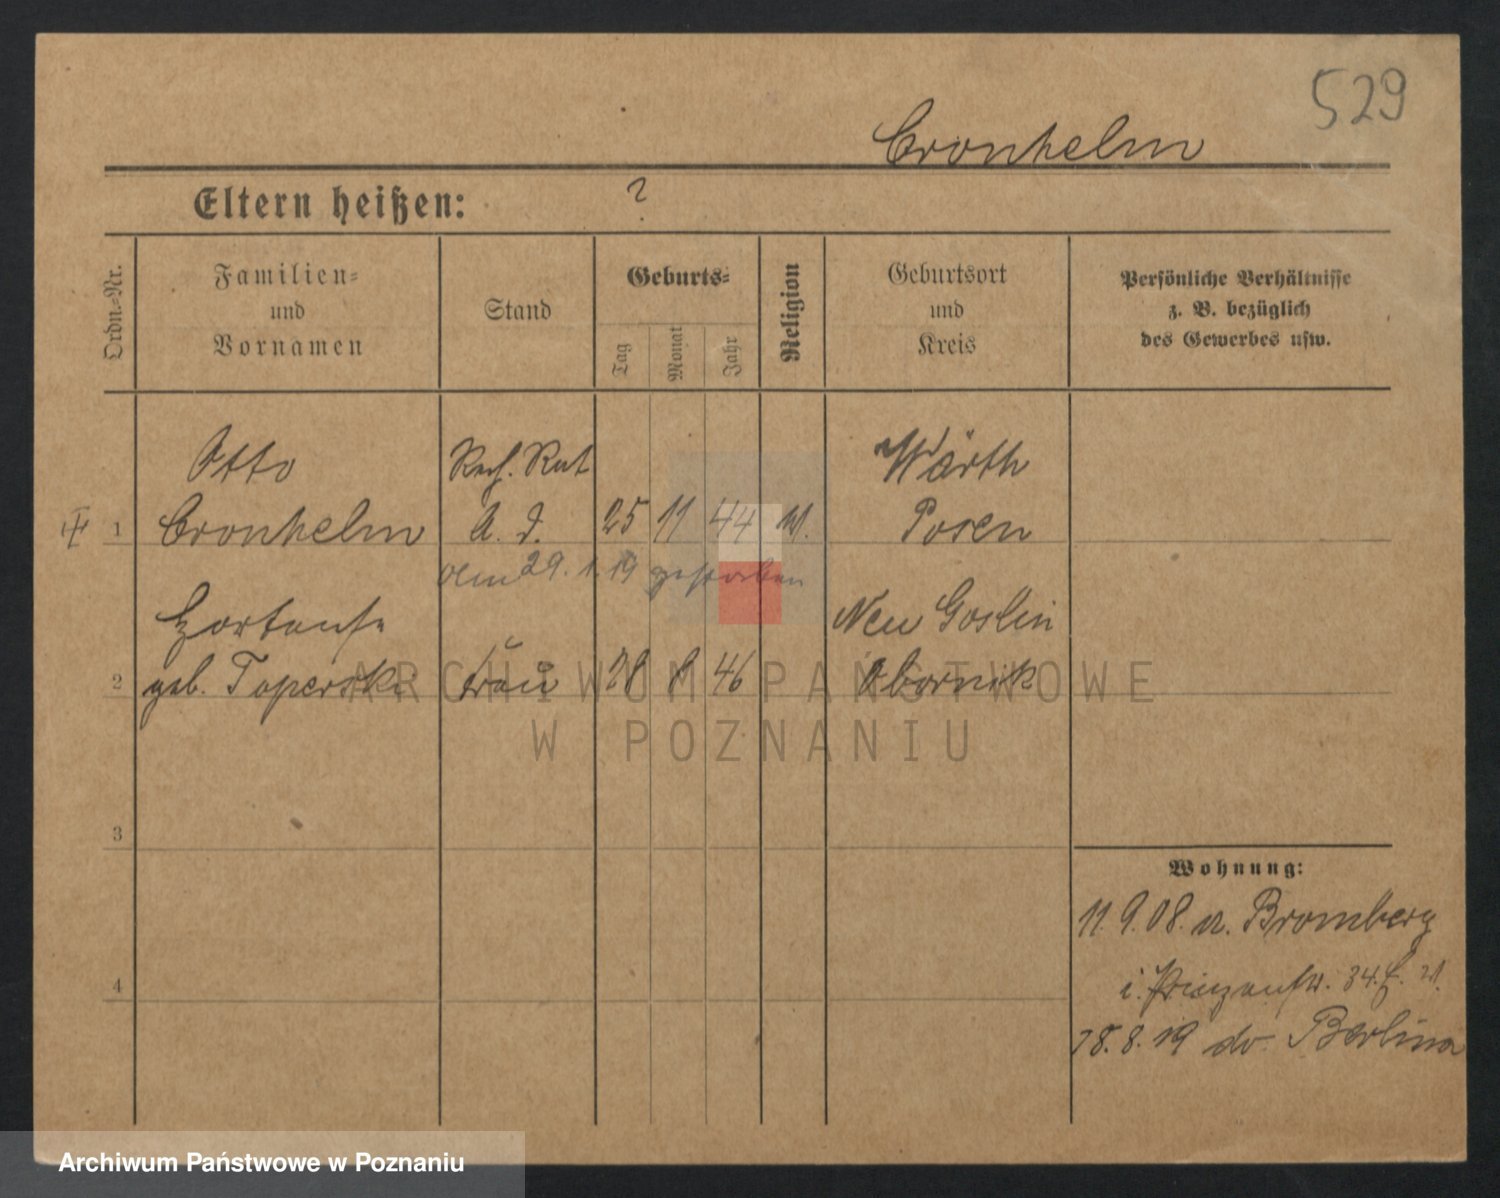 529
Cronhelm
Eltern heißen: ?
Ordn.=Nr.
Familien=
und
Vornamen
Stand
Geburts=
Tag
Monat
Jahr
Religion
Geburtsort
und
Kreis
Persönliche Verhältnisse
z. B. bezüglich
des Gewerbes usw.
Otto
Rech. Rat
Wärth
1
Cronhelm
a. D.
25
11
44
Posen
Am 29. 1. 19 gestorben
Hortense
Neu Goslin
2
geb. Toperski
Frau
28
8
46
Obornik
ARCHIWUM PAŃSTWOWE
W POZNANIU
3
Wohnung:
11. 9. 08. a. Bromberg
4
i. Prinzenstr. 34.
8. 19
Archiwum Państwowe w Poznaniu